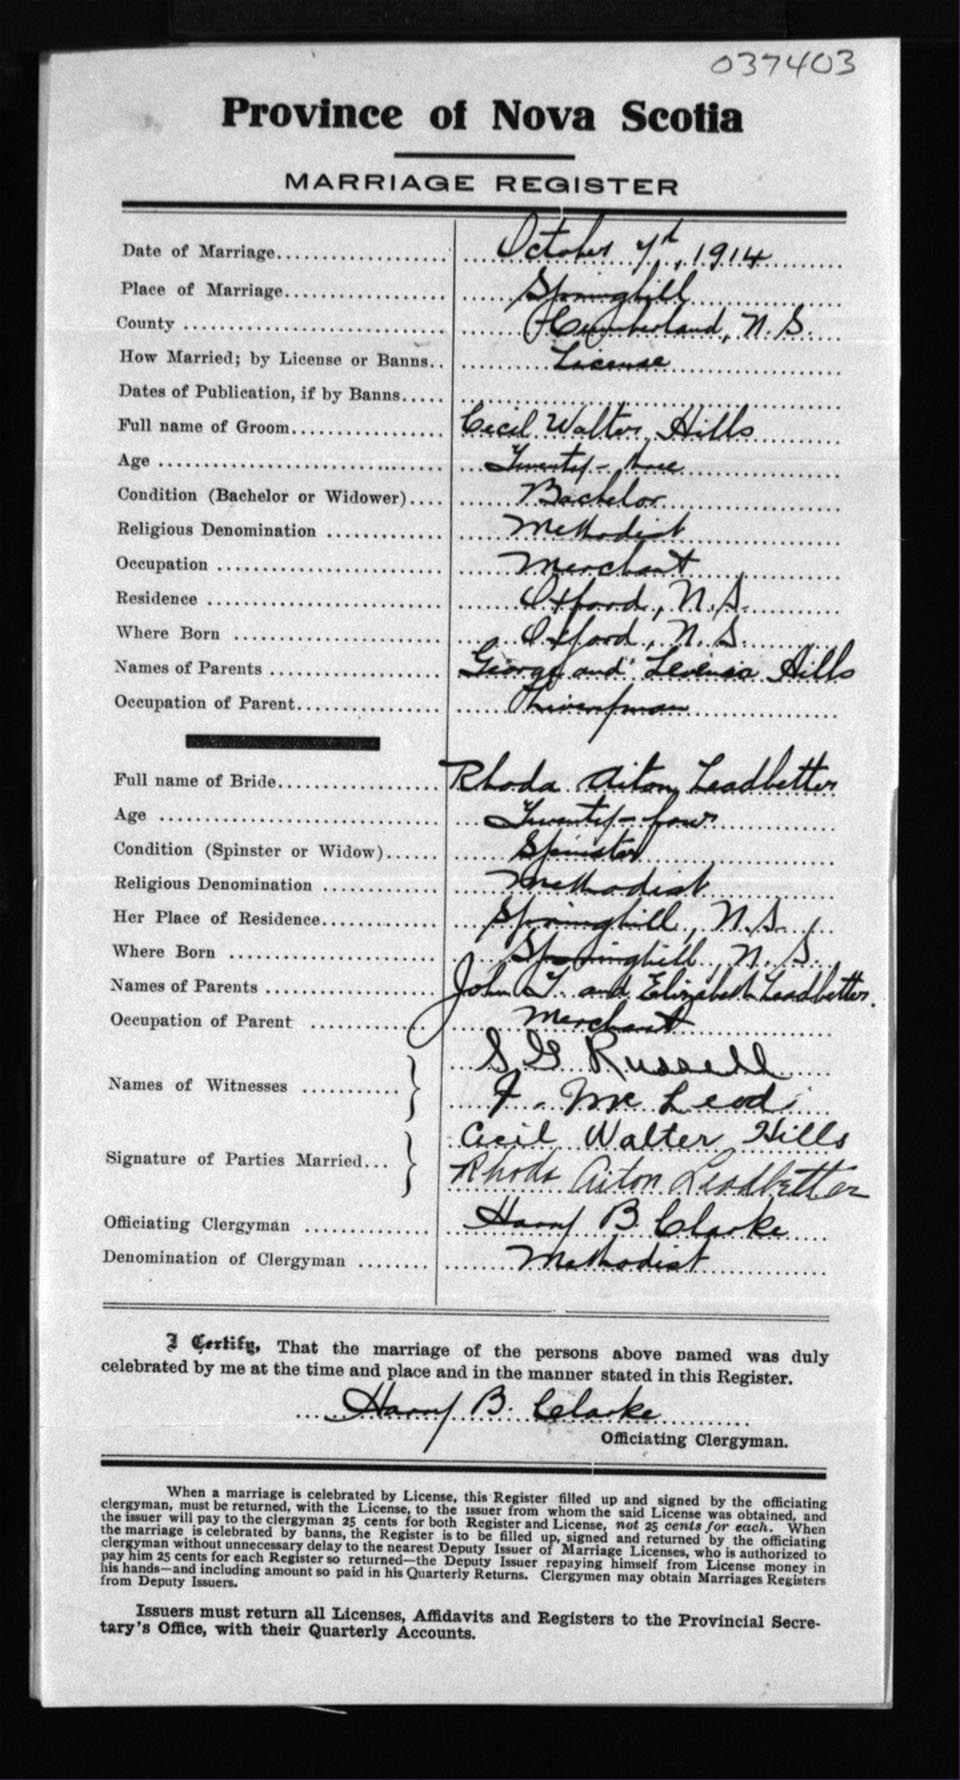 037403
Province of Nova Scotia
MARRIAGE REGISTER
Date of Marriage October 7th, 1914
Place of Marriage Springhill
County Cumberland, N. S.
How Married; by License or Banns License
Dates of Publication, if by Banns
Full name of Groom Cecil Walter Hills
Age Twenty-three
Condition (Bachelor or Widower) Bachelor
Religious Denomination Methodist
Occupation Merchant
Residence Oxford, N. S.
Where Born Oxford, N. S.
Names of Parents George and Hills
Occupation of Parent Liveryman
Full name of Bride Rhoda Aiton Leadbetter
Age Twenty-four
Condition (Spinster or Widow) Spinster
Religious Denomination Methodist
Her Place of Residence Springhill, N. S.
Where Born Springhill, N. S.
Names of Parents John T. and Elizabeth Leadbetter.
Occupation of Parent Merchant
Names of Witnesses S G Russell
McLeod
Signature of Parties Married Cecil Walter Hills
Rhoda Aiton Leadbetter
Officiating Clergyman Harry B. Clarke
Denomination of Clergyman Methodist
I Certify, That the marriage of the persons above named was duly
celebrated by me at the time and place and in the manner stated in this Register.
Harry B. Clarke
Officiating Clergyman.
When a marriage is celebrated by License, this Register filled up and signed by the officiating
clergyman, must be returned, with the License, to the issuer from whom the said License was obtained, and
the issuer will pay to the clergyman 25 cents for both Register and License, not 25 cents for each. When
the marriage is celebrated by banns, the Register is to be filled up, signed and returned by the officiating
clergyman without unnecessary delay to the nearest Deputy Issuer of Marriage Licenses, who is authorized to
pay him 25 cents for each Register so returned—the Deputy Issuer repaying himself from License money in
his hands—and including amount so paid in his Quarterly Returns. Clergymen may obtain Marriages Registers
from Deputy Issuers.
Issuers must return all Licenses, Affidavits and Registers to the Provincial Secre-
tary's Office, with their Quarterly Accounts.